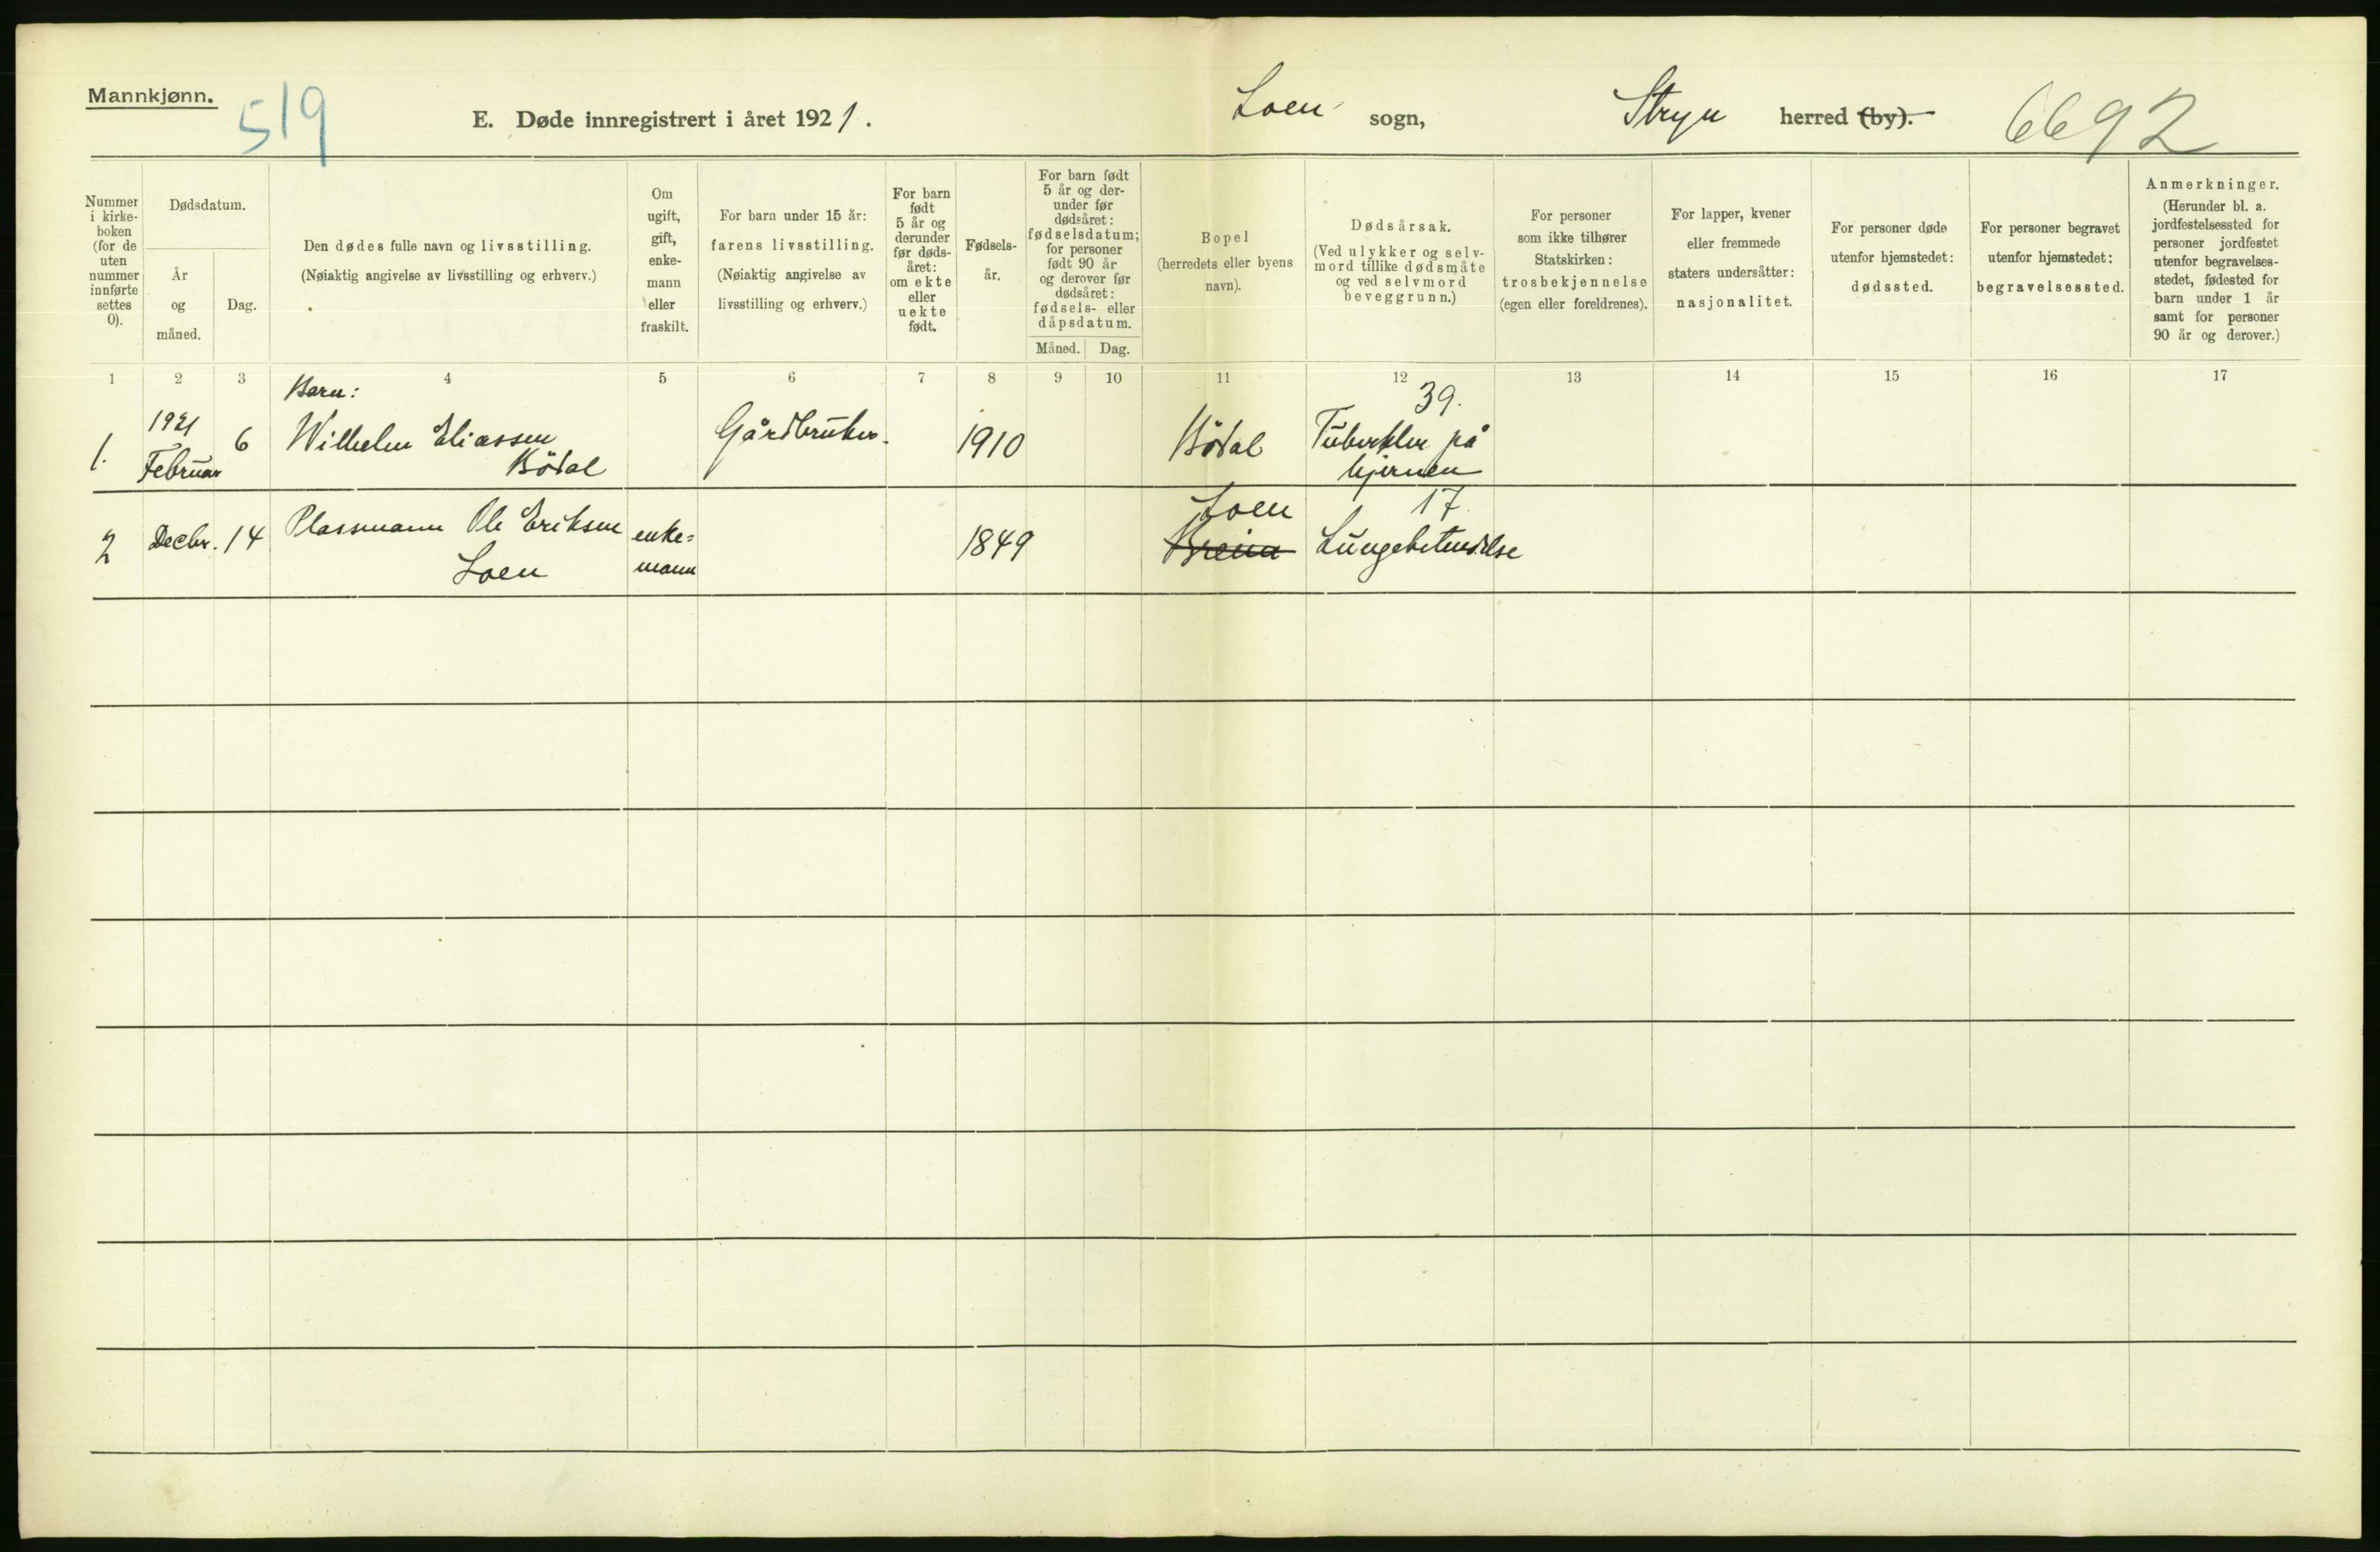 Mannkjønn.
519
E. Døde innregistrert i året 1921.
Loen sogn,
Stryn herred (by).
6692
Nummer
i kirke-
boken
(for de
uten
nummer
innførte
settes
0).
Dødsdatum.
År
og
måned.
Dag.
Den dødes fulle navn og livsstilling.
(Nøiaktig angivelse av livsstilling og erhverv.)
Om
ugift,
gift,
enke-
mann
eller
fraskilt.
For barn under 15 år:
farens livsstilling.
(Nøiaktig angivelse av
livsstilling og erhverv.)
For barn
født
5 år og
derunder
før døds-
året:
om ekte
eller
uekte
født.
Fødsels-
år.
For barn født
5 år og der-
under før
dødsåret:
fødselsdatum;
for personer
født 90 år
og derover før
dødsåret:
fødsels- eller
dåpsdatum.
Måned. Dag.
Bopel
(herredets eller byens
navn).
Dødsårsak.
(Ved ulykker og selv-
mord tillike dødsmåte
og ved selvmord
beveggrunn.)
For personer
som ikke tilhører
Statskirken:
trosbekjennelse
(egen eller foreldrenes).
For lapper, kvener
eller fremmede
staters undersåtter:
nasjonalitet.
For personer døde
utenfor hjemstedet:
dødssted.
For personer begravet
utenfor hjemstedet:
begravelsessted.
Anmerkninger.
(Herunder bl. a.
jordfestelsessted for
personer jordfestet
utenfor begravelses-
stedet, fødested for
barn under 1 år
samt for personer
90 år og derover.)
1 2 3 4 5 6 7 8 9 10 11 12 13 14 15 16 17
Barn:
39.
1921
1. Februar 6 Wilhelm Eliassen Gårdbruker. 1910 Bödal Tuberkler på
Bödal hjernen
Loen 17.
2 Decbr. 14 Plassmann Ole Eriksen enke= 1849 Breim Lungebetendelse
Loen mann